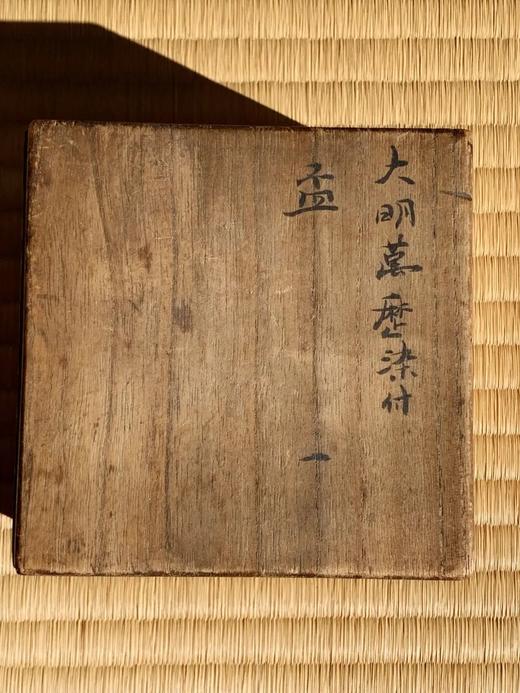 大明萬歴染付
盃 一